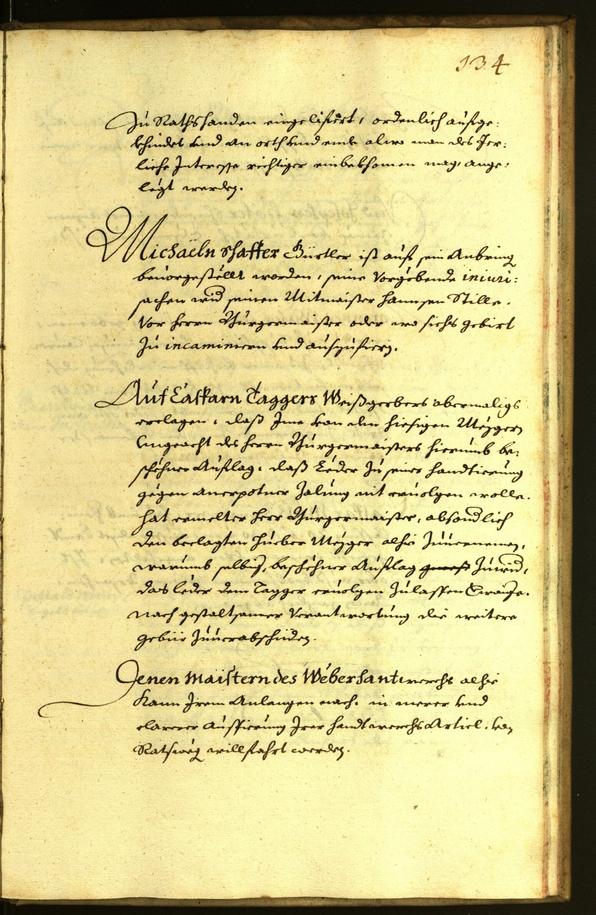 134
Zu Rathshanden eingelifert, ordenlich aufge-
und an orth und ende alwo man des
liche Interesse richtiger einbekhomen mag, ange-
legt werden.
Michaeln Schaffer Gürtler ist auf sein Anbring
beuorgestellt worden, seine Vorgebende iniuri-
sachen wid seinen Mitmaister Hannsen Stille.
Vor herrn Burgermaister oder wo sichs gebürt
zu incaminiern und auszufiern.
Auf Caspärn Taggers Weißgerbers abermaligs
erclagen, daß Ime von den hiesigen Mezgern
Vngeacht des herrn Burgermaisters hierumb be-
schehner Auflag, daß Leder zu seiner handtierung
gegen anerpotner Zalung nit eruolgen wolle.
hat ermelter herr Burgermaister, absonderlich
den beclagten Hueber Mezger alhie Zuuernemen,
warumb selbiger, beschehner Auflag Zuwid,
das leder dem Tagger eruolgen Zulassen
nach gestaltsamer Verantwortung die weitere
gebür Zuuerabschiden.
Denen Maistern des Weberhantwerchs alhie
kann Irem Anlangen nach, in merer und
clarerer Ausfierung Irer handtwerchs Articl, von
Rathsweg willfahrt werden.